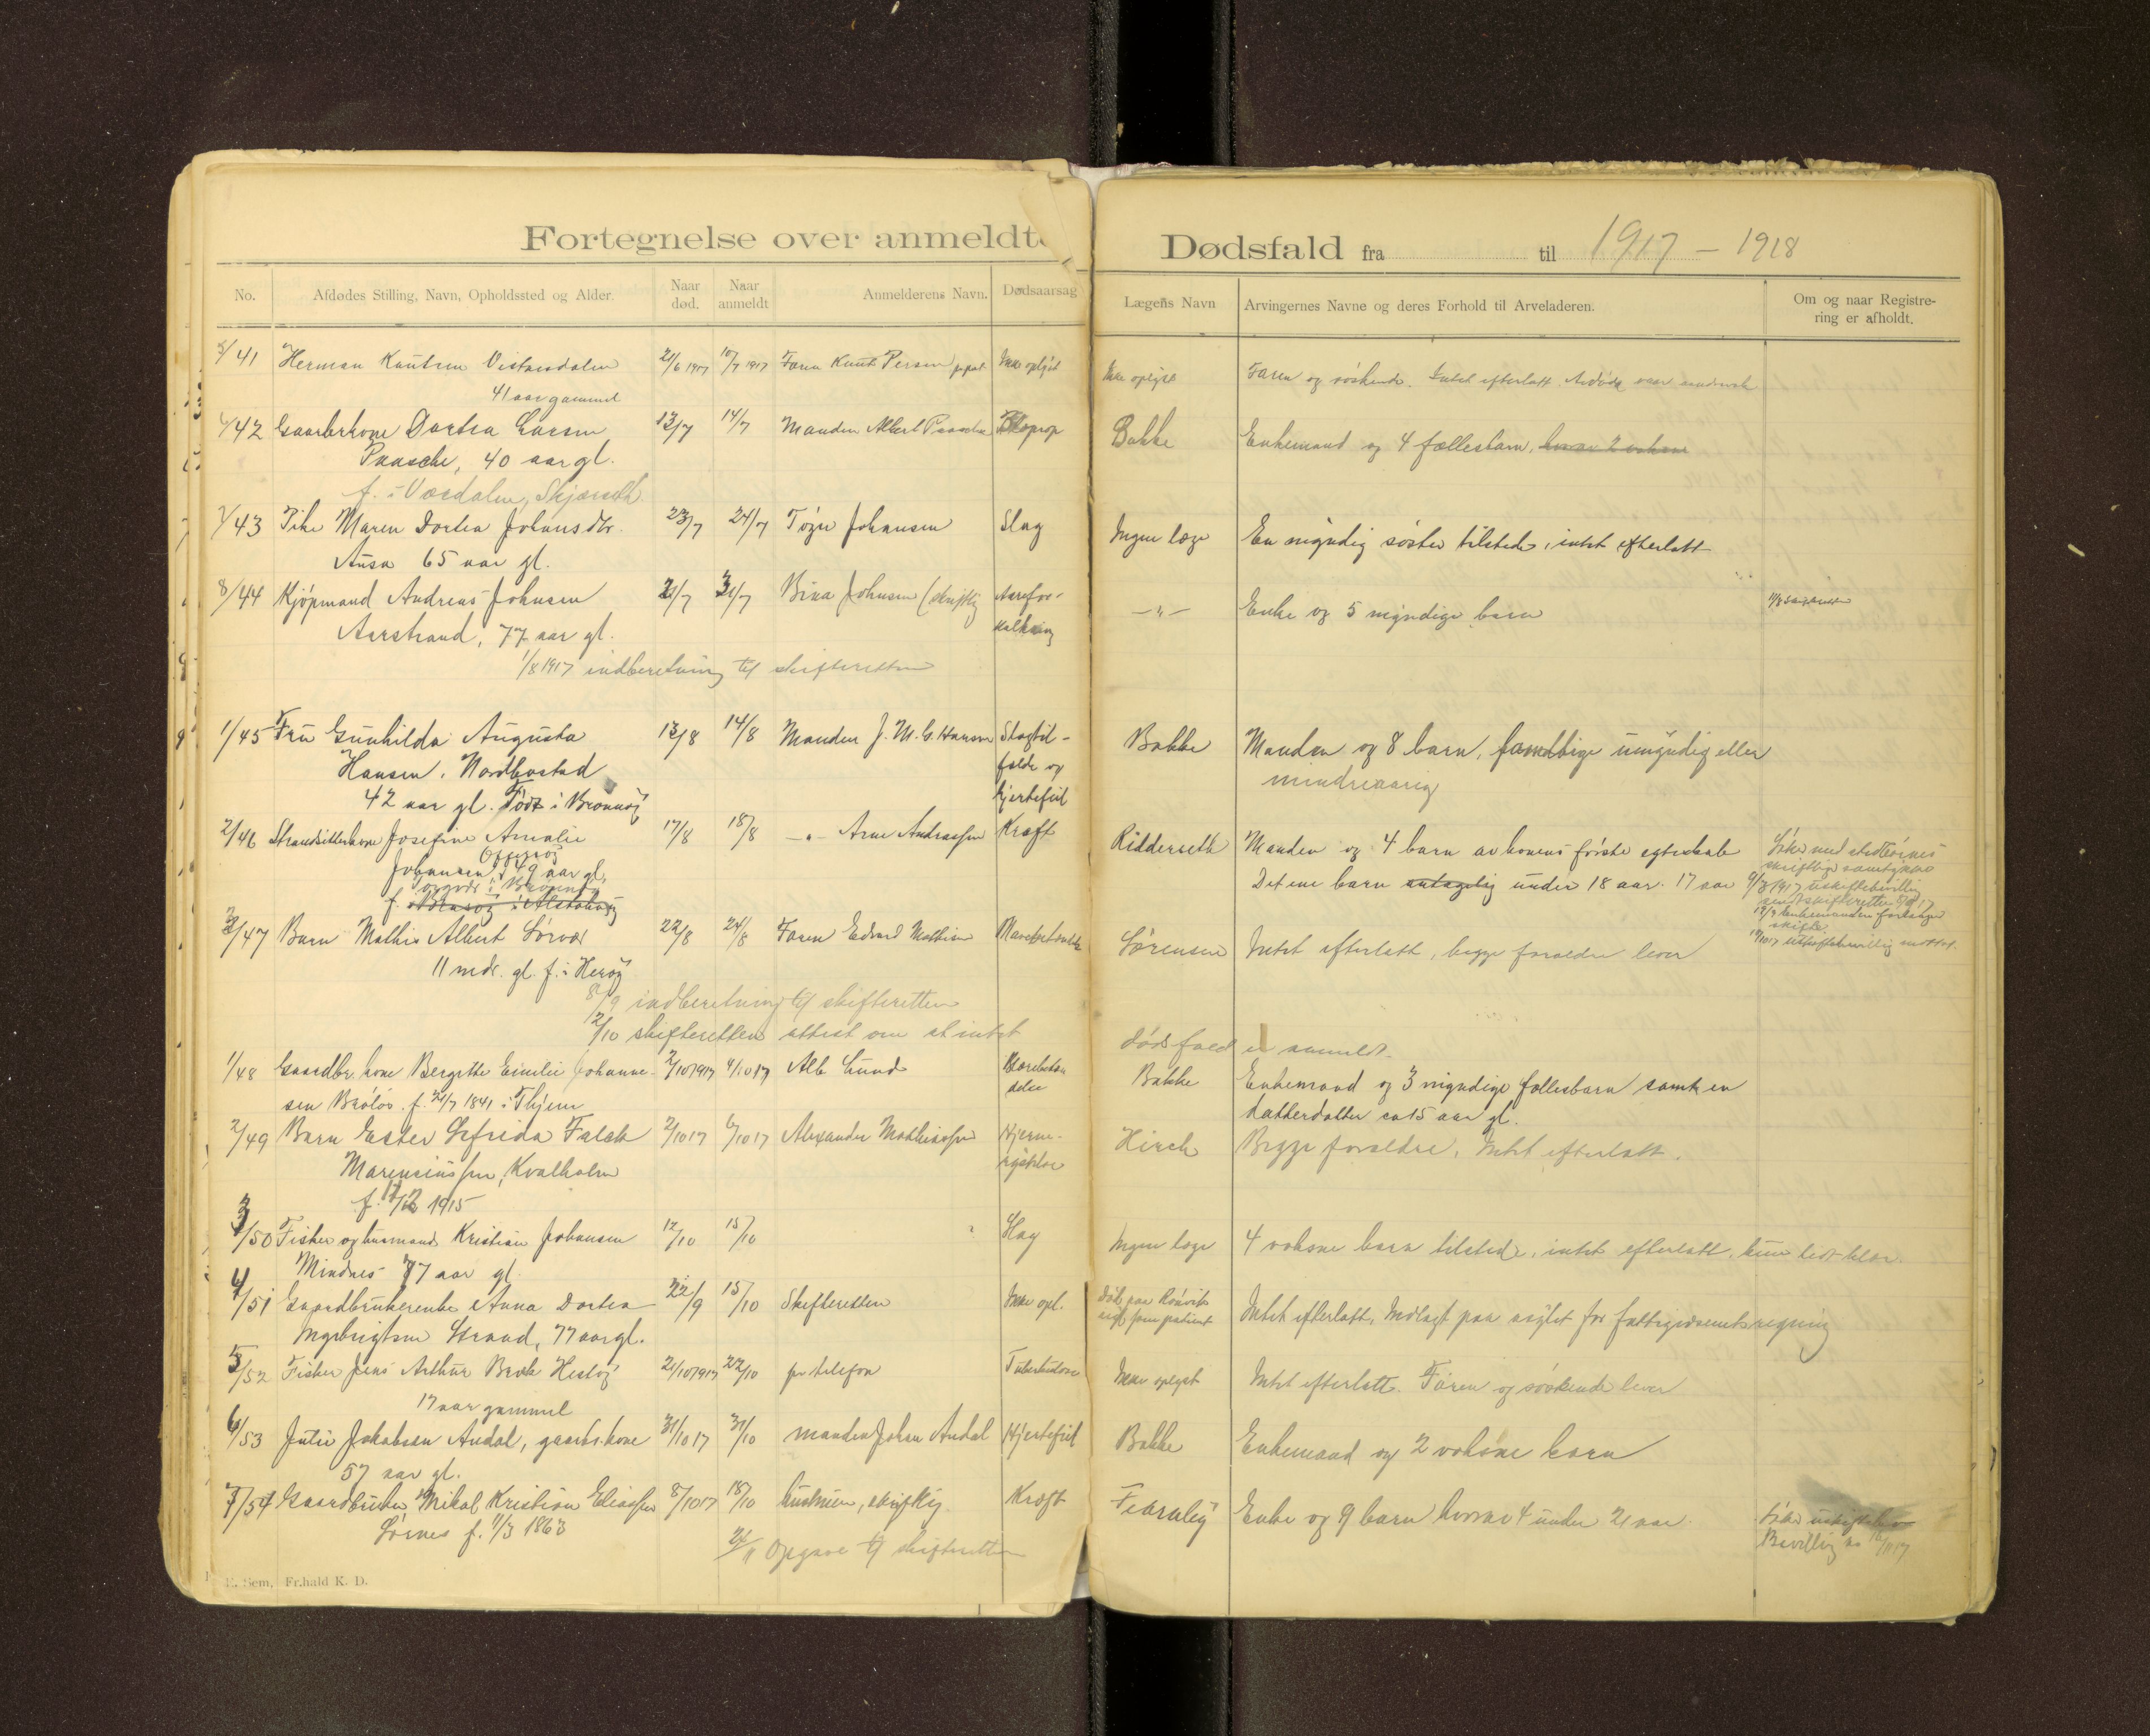 Fortegnelse over anmeldte
Dødsfald fra til 1917 - 1918
No. Afdødes Stilling, Navn, Opholdssted og Alder. Naar død. Naar anmeldt Anmelderens Navn. Dødsaarsag
Lægens Navn Arvingernes Navne og deres Forhold til Arveladeren. Om og naar Registrering er afholdt.
5/41 Herman Knutsen 21/6 1917 10/7 1917 Faren Knut Persen Ikke oplyst
41 aar gammel
Ikke oplyst Faren og søskende. Intet efterlatt.
42 Gaardbrkone Dortea Larsen 13/7 14/7 Manden Albert Paasche
Paasche, 40 aar gl.
Bakke Enkemand og 4 fællesbarn, hvorav 2 voksne
f. i Skjerstad
7/43 Pike Maren Dortea Johansdtr. 23/7 24/7 Johansen Slag
Ausa 65 aar gl.
Ingen læge En myndig søster tilstede, intet efterlatt
8/44 Kjøpmand Andreas Johnsen 21/7 31/7 Bina Johnsen (skriftlig Aarefor-
Aarstrand, 77 aar gl. kalkning
-"- Enke og 5 myndige barn
1/8 1917 indberetning til skifteretten
1/45 Fru Gunhilda Augusta 13/8 14/8 Manden J. M. G. Hansen Slagtil-
Hansen, Nordbostad fælde og
42 aar gl. Født i Brønnøy hjertefeil
Bakke Manden og 8 barn, samtlige umyndig eller
mindreaarig
2/46 Strandsitterkone Josefine Amalie 17/8 18/8 -"- Arne Andreassen Kræft
Johansen, 49 aar gl.
f.
Ridderseth Manden og 4 barn av konens første egteskab
Det ene barn antagelig under 18 aar. 17 aar
skriftlige samtykke
3/47 Barn Mathis Albert Sørvær 22/8 24/8 Faren Edvard Mathisen
11 mdr. gl. f. i Herøy
Sørensen Intet efterlatt, begge forældre lever
8/9 indberetning til skifteretten
2/10 skifteretten attest om at intet
dødsfald er anmeldt.
1/48 Gaardbr. kone Bergitte Emilie Johanne- 2/10 1917 4/10 17 Alb Lund
sen f. 21/7 1841 i Thjem
Bakke Enkemand og 3 myndige fællesbarn samt en
datterdatter ca 15 aar gl.
2/49 Barn Ester Sefrida Falch 2/10 17 6/10 17 Alexander Mathiassen Hjerne-
Marensiussen, Kvalholm rystelse
f. 1915
Hirch Begge forældre. Intet efterlatt.
3/50 Fisker og husmand Kristian Johansen 12/10 15/10 Slag
Mindnes 77 aar gl.
Ingen læge 4 voksne barn tilstede, intet efterlatt, kun
4/51 Gaardbrukerenke Anna Dortea 22/9 15/10 Skifteretten Ikke opl.
Ingebrigtsen Strand, 77 aar gl.
Død paa Rønvik
asyl som patient
Intet efterlatt. Indlagt paa asylet for fattigvæsenets regning
5/52 Fisker Jens Arthur 21/10 1917 22/10 pr telefon Tuberkulose
17 aar gammel
Ikke oplyst Intet efterlatt. Faren og søskende lever
6/53 Julie Jakobsen Andal, gaardbr.kone 31/10 17 31/10 manden Johan Andal Hjertefeil
57 aar gl.
Bakke Enkemand og 2 voksne barn
7/54 Gaardbruker Mikal Kristian Eliassen 8/10 17 18/10 hustruen, skriftlig Kræft
Sørnes f. 11/3 1863
Fearnley Enke og 9 barn hvorav 4 under 21 aar.
Bevilling
Opgave til skifteretten
E. Sem, Fr.hald K. D.